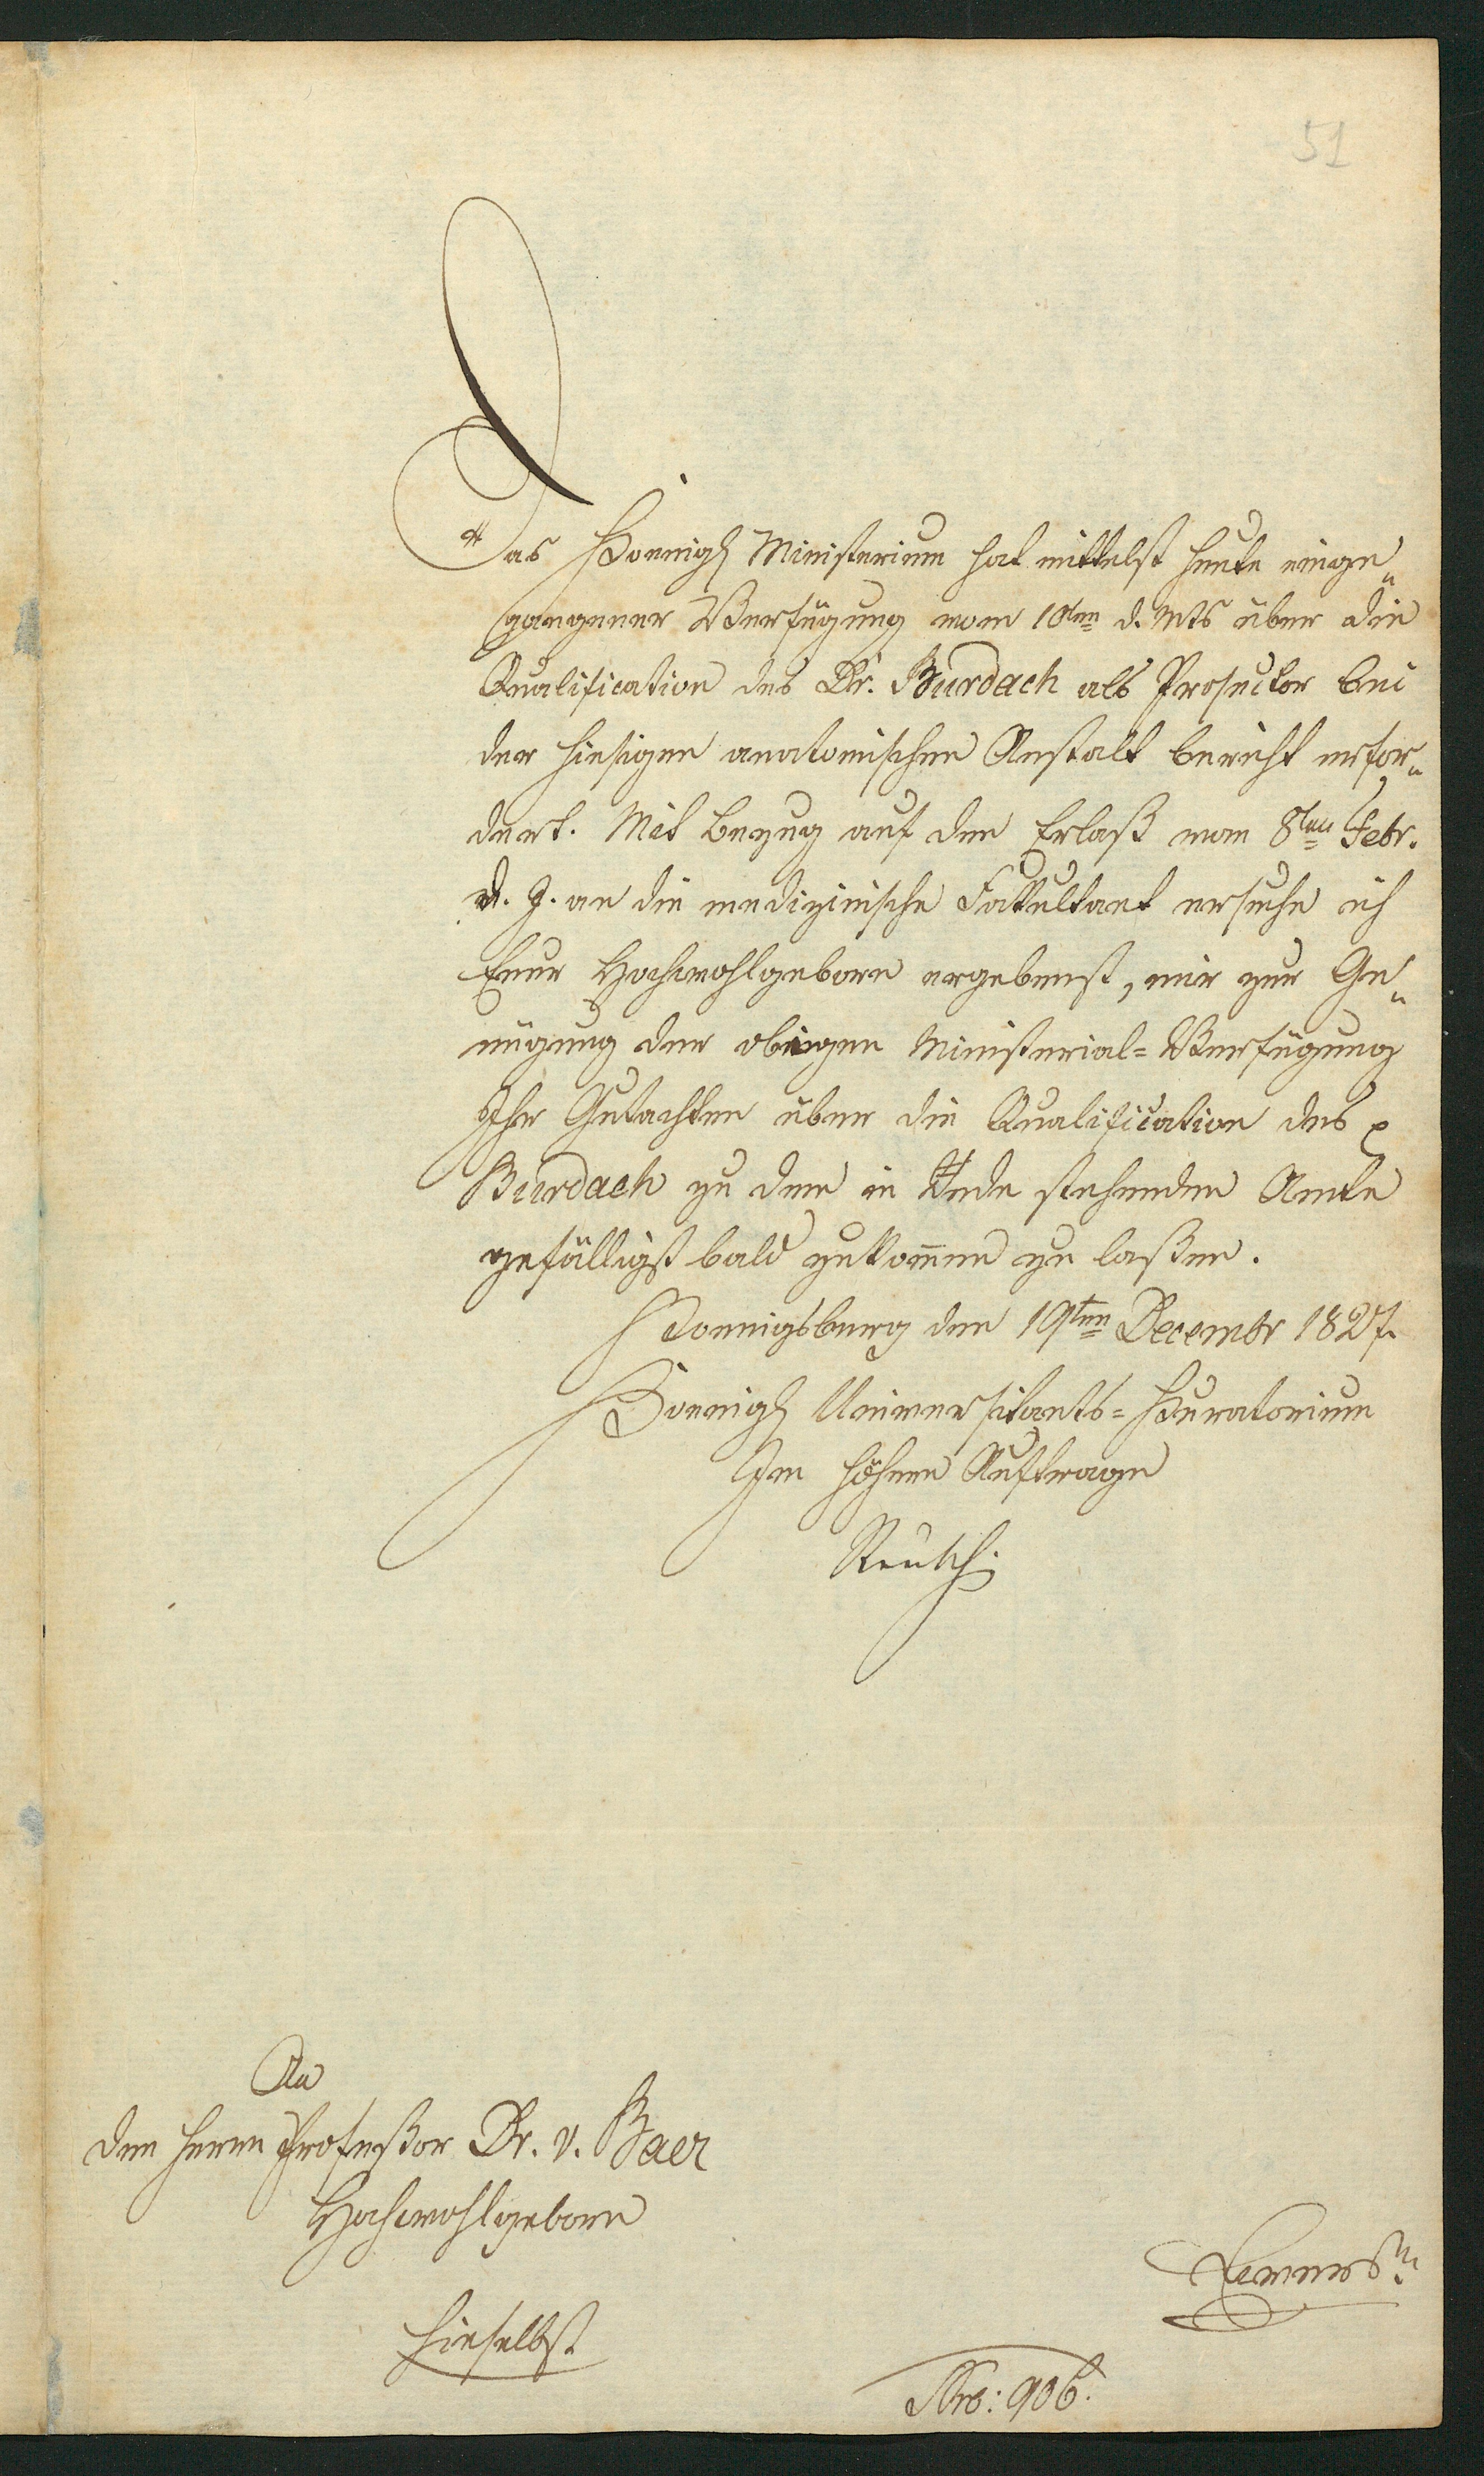 51
Das Koenigl Ministerium hat mittelst heute einge„
gangener Verfügung vom 10ten d. Mts über die
Qualification des Dr. Burdach als Prosector bei
der hiesigen anatomischen Anstalt bericht erfor„
dert. Mit bezug auf den Erlaß vom 8ten Febr.
d. J. an die medizinische Fakultaet ersuche ich
Euer Hochwohlgeborn ergebenst, mir zur Ge„
nügung der obigen Ministerial=Verfügung
Ihr Gutachten über die Qualification des
Burdach zu dem in Rede stehenden Amte
gefälligst bald zukom̄en zu laßen.
Koenigsberg den 19ten Decembr 1827.
Koenigl Universitaets=Kuratorium
Im höhern Auftrage
Reusch.
An
den Herrn Profeßor Dr. v. Baer
Hochwohlgeborn
hieselbst
Nro: 906.